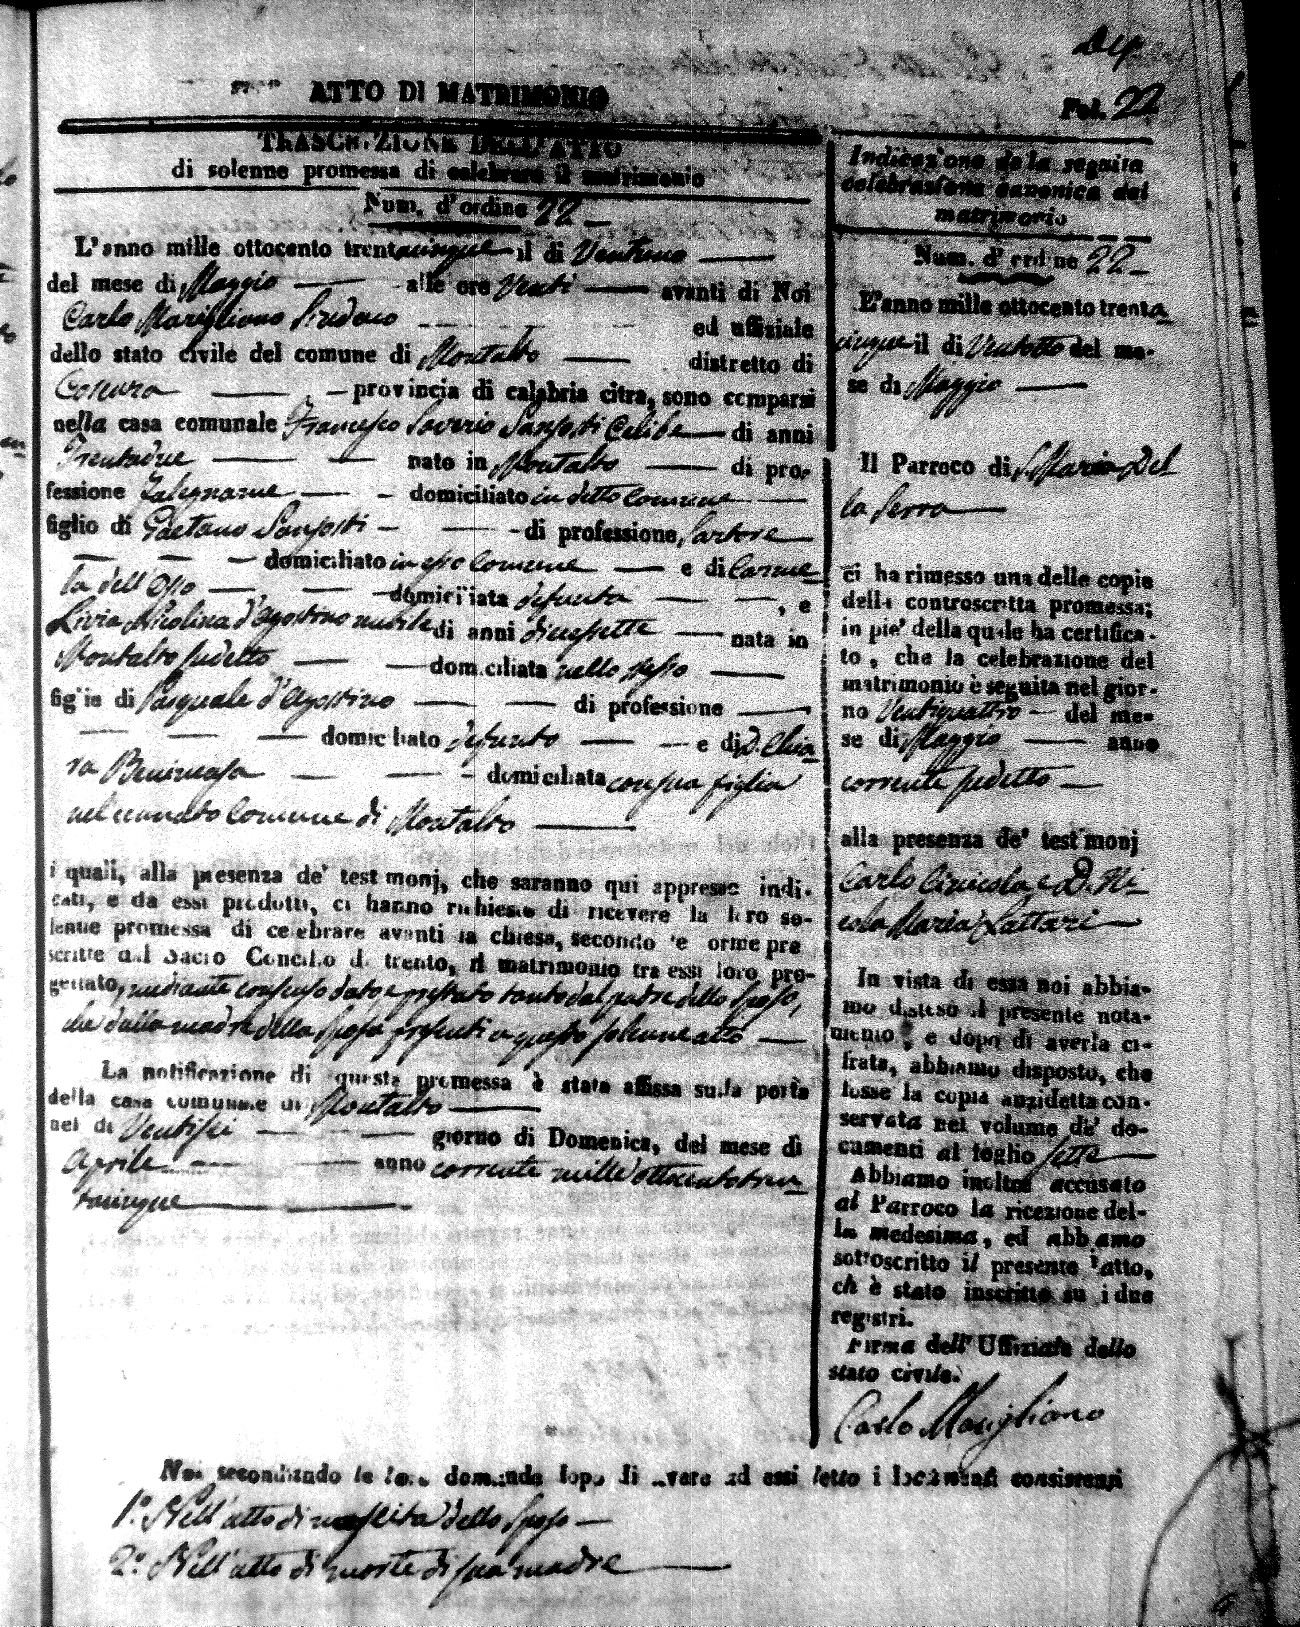 ATTO DI MATRIMONIO
Fol. 22
TRASCRIZIONE DELL'ATTO
di solenne promessa di celebrare il matrimonio
Num. d'ordine 22
L'anno mille ottocento trentacinque il di Ventuno
del mese di Maggio alle ore Venti avanti di Noi
Carlo Marigliano Sindaco ed uffiziale
dello stato civile del comune di Montalto distretto di
Cosenza provincia di calabria citra, sono comparsi
nella casa comunale Francesco Saverio Sansosti Celibe di anni
Trentadue nato in Montalto di pro-
fessione Falegname domiciliato in detto Comune
figlio di Gaetano Sansosti di professione Sartore
domiciliato in esso Comune e di Carme
la dell'Osso domiciliata defunta , e
Livia Nicolina d'Agostino nubile di anni diciessette nata in
Montalto sudetto domiciliata nello stesso
figlia di Pasquale d'Agostino di professione
domiciliato defunto e di D. Chia
ra domiciliata con sua figlia
nel cennato Comune di Montalto
i quali, alla presenza de' testimonj, che saranno qui appresso indi-
cati, e da essi prodotti, ci hanno richiesto di ricevere la loro so-
lenne promessa di celebrare avanti la chiesa, secondo le forme pre
scritte dal Sacro Concilio di trento, il matrimonio tra essi loro pro-
gettato, mediante consenso dato e prestato tanto dal padre dello sposo,
che dalla madre della sposa presenti a questo solenne atto
La notificazione di questa promessa è stata affissa sulla porta
della casa comunale di Montalto
nel di Ventisei giorno di Domenica, del mese di
Aprile anno corrente mille ottocentotren-
tacinque
Indicazione de la seguita
celebrazione canonica del
matrimonio
Num. d'ordine 22
L'anno mille ottocento trenta
cinque il di Ventotto del me-
se di Maggio
Il Parroco di S. Maria Del
la Serra
ci ha rimesso una delle copie
della controscritta promessa;
in piè della quale ha certifica-
to, che la celebrazione del
matrimonio è seguita nel gior-
no Ventiquattro del me-
se di Maggio anno
corrente sudetto
alla presenza de' testimonj
Carlo e D. Ni
cola Maria Lattari
In vista di essa noi abbia-
mo disteso il presente nota-
mento, e dopo di averla ci-
frata, abbiamo disposto, che
fosse la copia anzidetta con-
servata nel volume de' do-
cumenti al foglio sette
Abbiamo inoltre accusato
al Parroco la ricezione del-
la medesima, ed abbiamo
sottoscritto il presente atto,
ch è stato inscritto su i due
registri.
Firma dell'Uffiziale dello
stato civile.
Carlo Marigliano
Noi secondando le loro domande dopo di avere ad essi letto i documenti consistenti
1.° Nell'atto di nascita dello sposo
2.° Nell'atto di morte di sua madre